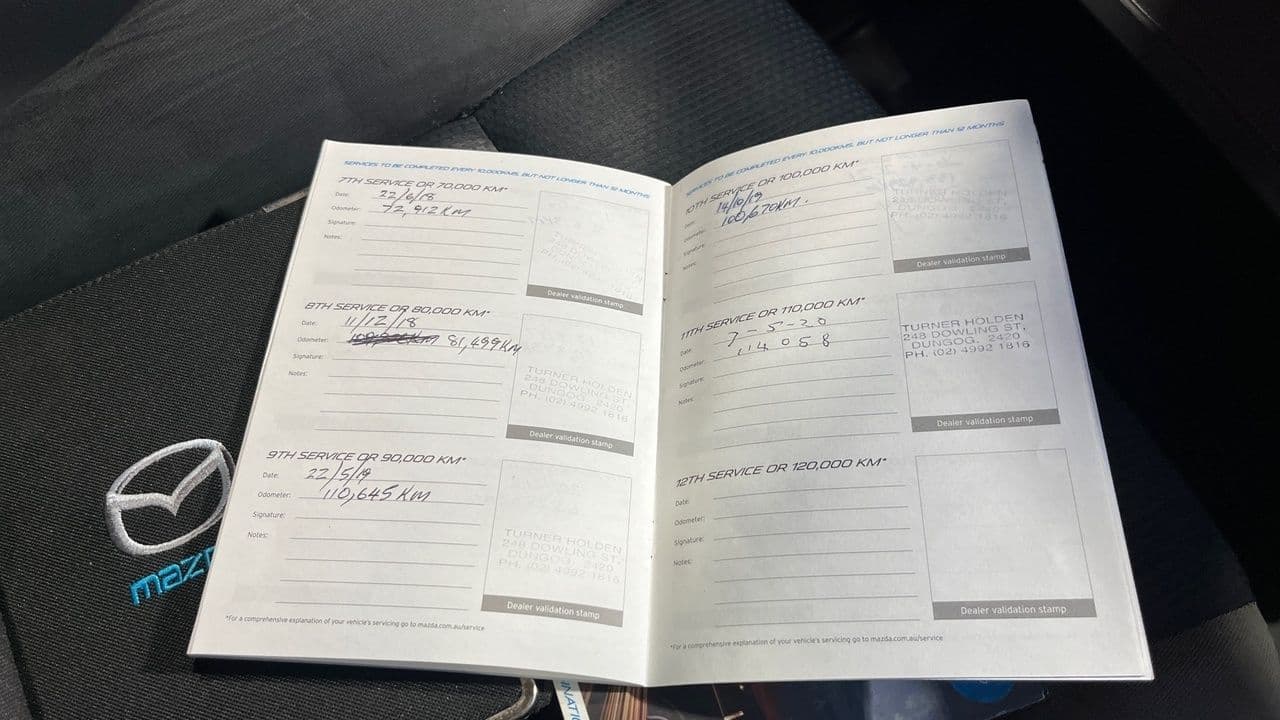 SERVICES TO BE COMPLETED EVERY 10,000KMS, BUT NOT LONGER THAN 12 MONTHS
7TH SERVICE OR 70,000 KM*
Date: 22/6/18
Odometer: 72,912 KM
Signature:
Notes:
Dealer validation stamp
8TH SERVICE OR 80,000 KM*
Date: 11/12/18
Odometer: 81,499 KM
Signature:
Notes:
TURNER HOLDEN
248 DOWLING ST.
DUNGOG. 2420
PH. (02) 4992 1816
Dealer validation stamp
9TH SERVICE OR 90,000 KM*
Date: 22/5/19
Odometer: 110,645 KM
Signature:
Notes:
TURNER HOLDEN
248 DOWLING ST.
DUNGOG. 2420
PH. (02) 4992 1816
Dealer validation stamp
*For a comprehensive explanation of your vehicle's servicing go to mazda.com.au/service
SERVICES TO BE COMPLETED EVERY 10,000KMS, BUT NOT LONGER THAN 12 MONTHS
10TH SERVICE OR 100,000 KM*
Date: 14/10/19
Odometer: 100,670KM.
Signature:
Notes:
TURNER HOLDEN
248 DOWLING ST.
DUNGOG. 2420
PH. (02) 4992 1816
Dealer validation stamp
11TH SERVICE OR 110,000 KM*
Date: 7-5-20
Odometer: 114058
Signature:
Notes:
TURNER HOLDEN
248 DOWLING ST.
DUNGOG. 2420
PH. (02) 4992 1816
Dealer validation stamp
12TH SERVICE OR 120,000 KM*
Date:
Odometer:
Signature:
Notes:
Dealer validation stamp
*For a comprehensive explanation of your vehicle's servicing go to mazda.com.au/service